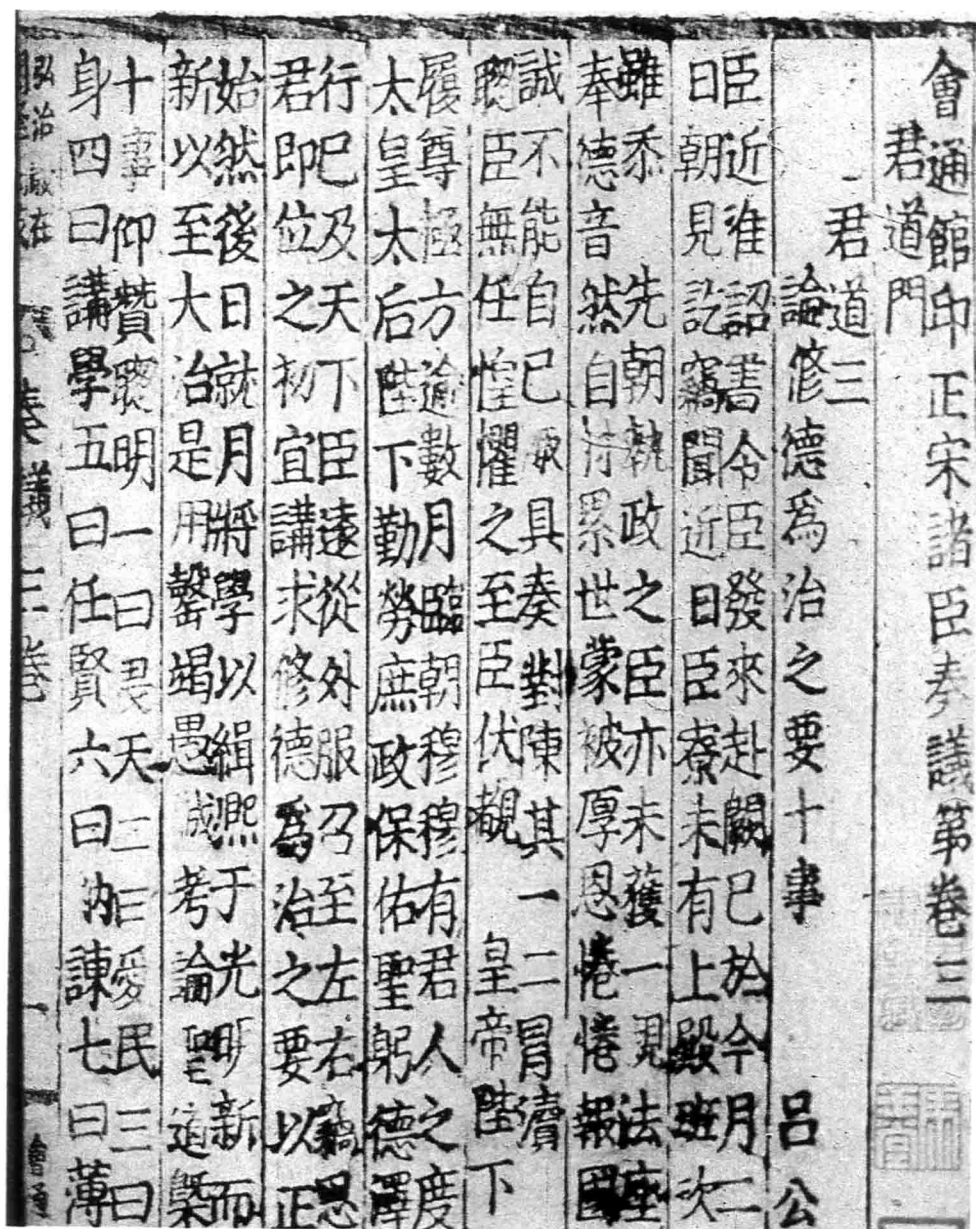 會通館印正宋諸臣奏議第卷三
君道門
君道三
論修德爲治之要十事 呂公
臣近准 詔書令臣發來赴闕已於今月二
日朝見訖竊聞近日臣寮未有上殿班次
雖忝 先朝執政之臣亦未獲一現法座
奉德音然自忖累世蒙被厚恩惓惓報國
誠不能自已敢具奏對陳其一二冒瀆
聦臣無任惶懼之至臣伏覩 皇帝陛下
履尊極方逾數月臨朝穆穆有君人之度
太皇太后陛下勤勞庶政保佑聖躬德澤
行已及天下臣遠從外服召至左右竊思
君即位之初宜講求修德爲治之要以正
始然後日就月將學以緝熙于光明新而
新以至大治是用罄竭愚誠考論聖道槩
十事仰贊聦明一曰畏天二曰愛民三曰
身四曰講學五曰任賢六曰納諫七曰薄
弘治歲在
奏議三卷 一 會通